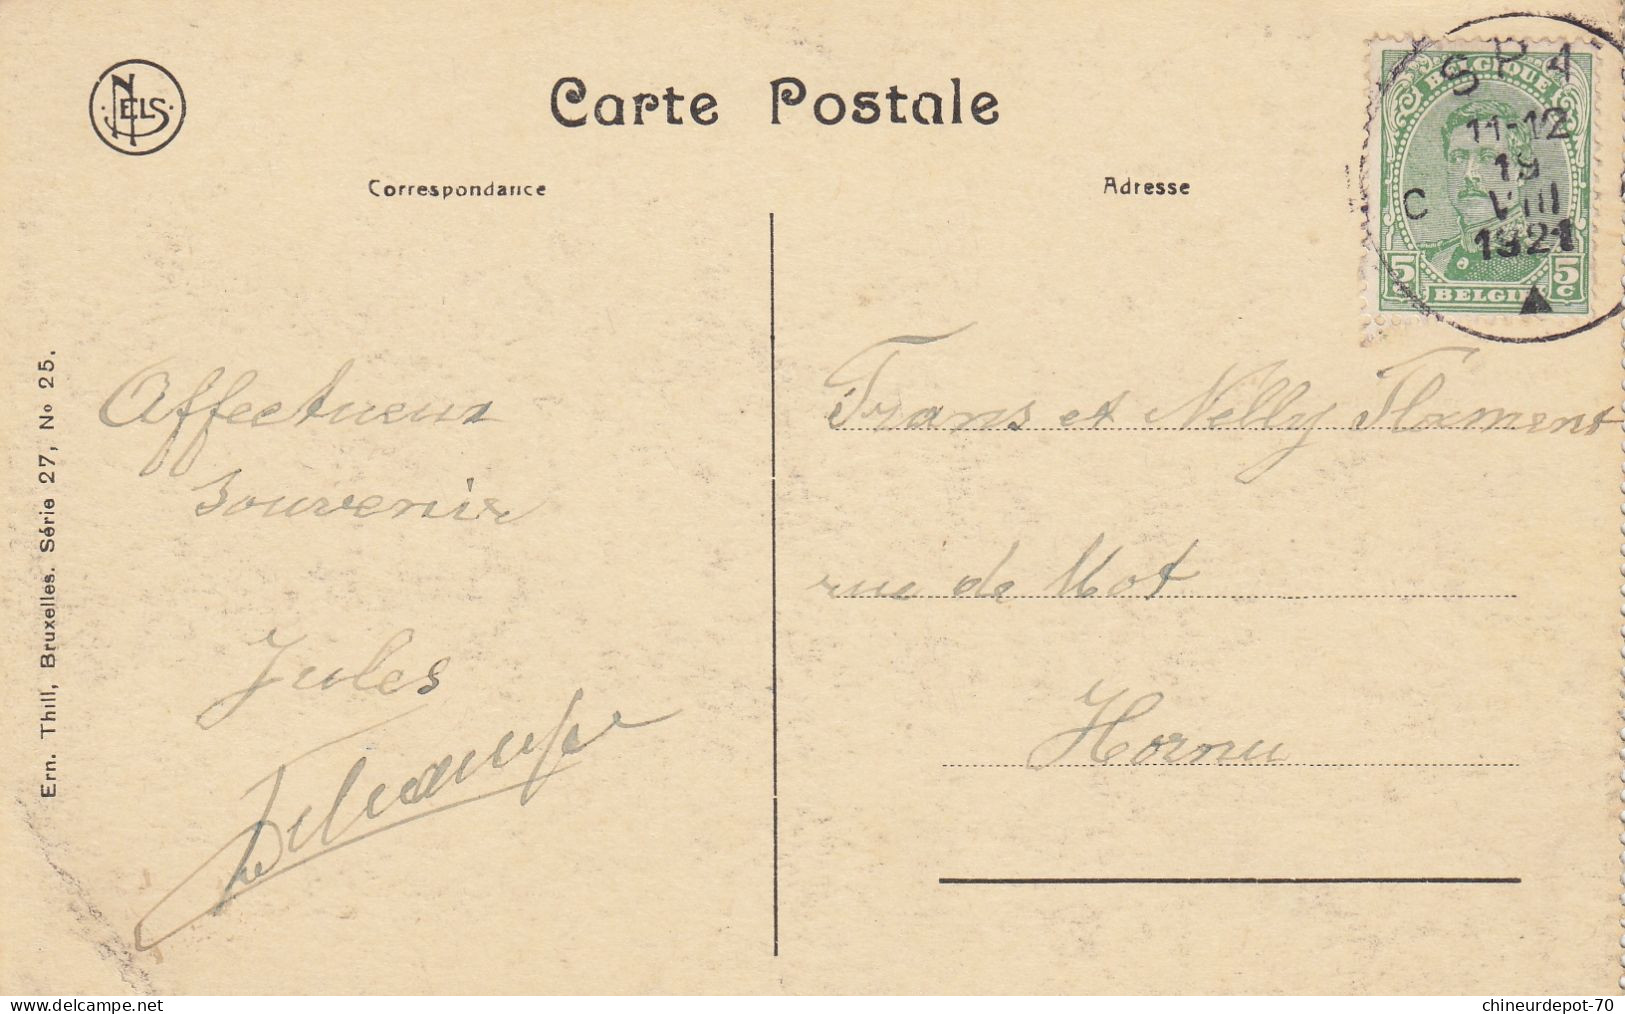 NELS
Carte Postale
Correspondance
Adresse
SPA
11-12
19
VIII
1921
C
BELGIQUE
5 5
c c
BELGIË
Affectueux
Souvenir
Jules
Delcampe
Frans et Nelly Flament
rue de Mot
Hornu
Ern. Thill, Bruxelles. Série 27, No 25.
delcampe.net
chineurdepot-70